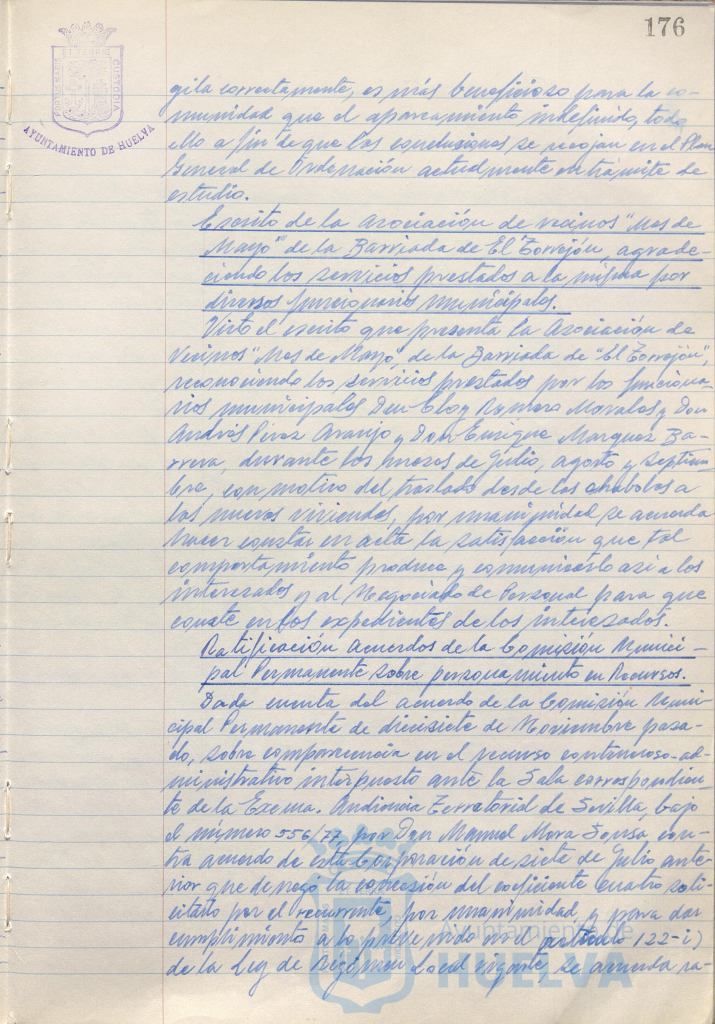 176
PORTUS MARIS ET TERRAE CUSTODIA
AYUNTAMIENTO DE HUELVA
gila correctamente, es más beneficioso para la co-
munidad que el aparcamiento indefinido, todo
ello a fin de que las conclusiones se recojan en el Plan
General de Ordenación actualmente en trámite de
estudio.
Escrito de la Asociación de vecinos "Mes de
Mayo" de la Barriada de El Torrejón, agrade-
ciendo los servicios prestados a la misma por
diversos funcionarios municipales.
Visto el escrito que presenta la Asociación de
Vecinos "Mes de Mayo", de la Barriada de "El Torrejón",
reconociendo los servicios prestados por los funciona-
rios municipales Don Eloy Romero Morales y Don
Andrés Pérez Araujo y Don Enrique Marquez Ba-
rrera, durante los meses de Julio, Agosto y Septiem-
bre, con motivo del traslado desde las chabolas a
las nuevas viviendas, por unanimidad se acuerda
hacer constar en acta la satisfacción que tal
comportamiento produce y comunicarlo asi a los
interesados y al Negociado de Personal para que
conste en los expedientes de los interesados.
Ratificación acuerdos de la Comisión Munici-
pal Permanente sobre personamiento en Recursos.
Dada cuenta del acuerdo de la Comisión Muni-
cipal Permanente de diecisiete de Noviembre pasa-
do, sobre comparecencia en el recurso contencioso-ad-
ministrativo interpuesto ante la Sala correspondien-
te de la Excma. Audiencia Territorial de Sevilla, bajo
el número 556/77, por Don Manuel Mora Sousa, con-
tra acuerdo de esta Corporación de siete de Julio ante-
rior que denegó la concesión del coeficiente cuatro soli-
citado por el recurrente, por unanimidad, y para dar
cumplimiento a lo prevenido en el artículo 122-i)
de la Ley de Régimen Local vigente, se acuerda ra-
Ayuntamiento de
HUELVA